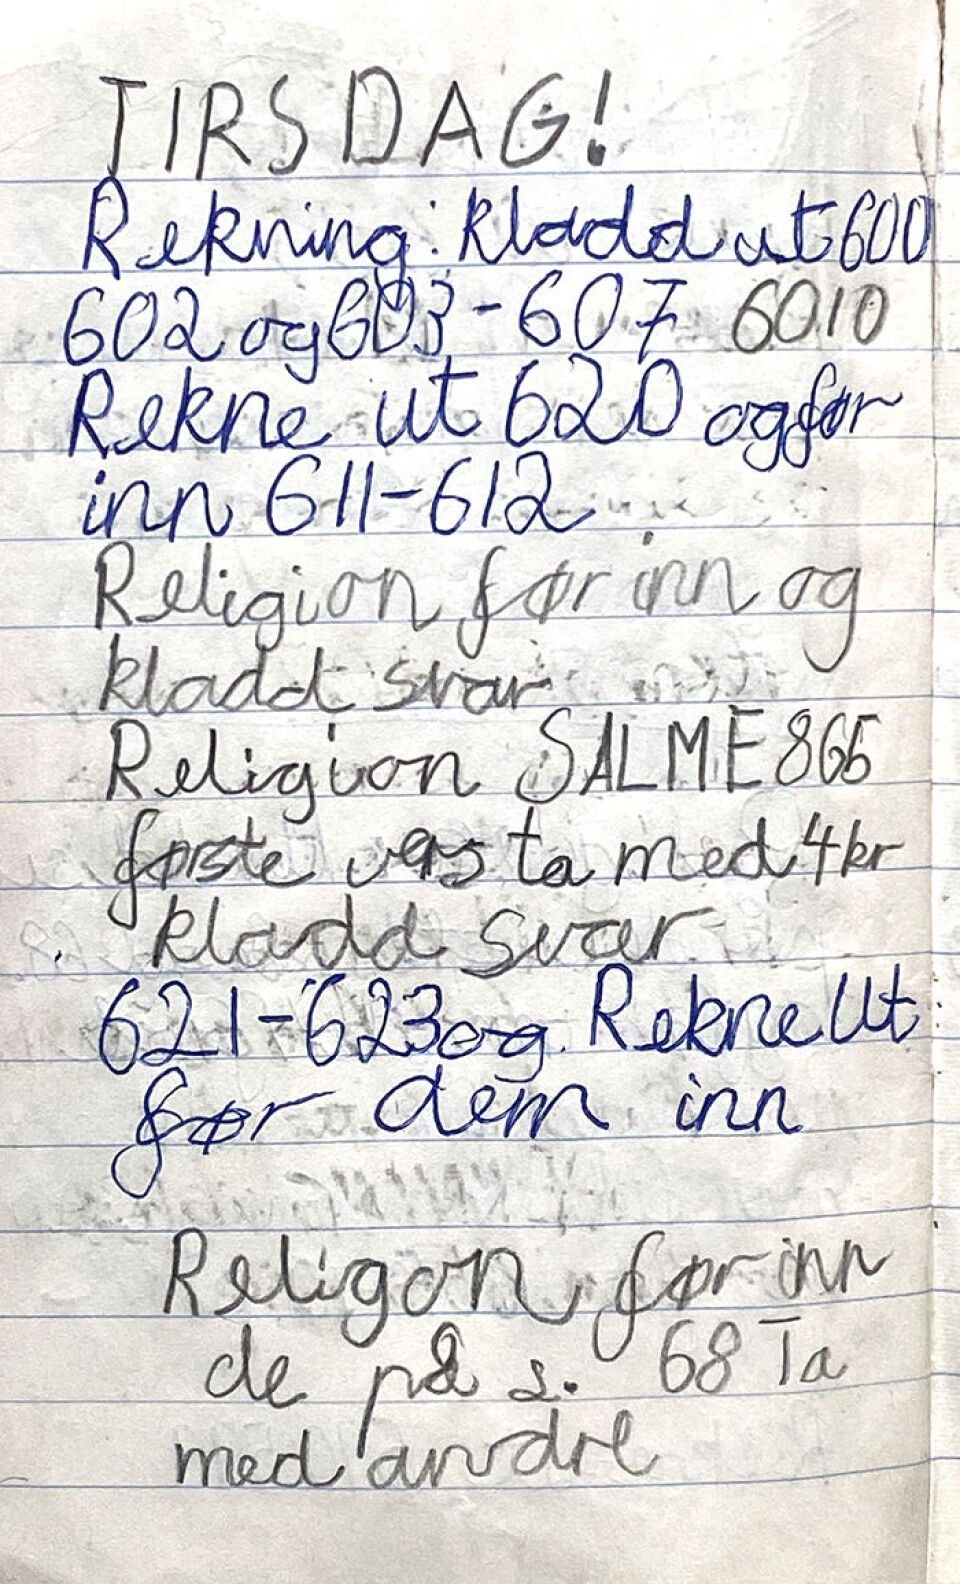 TIRSDAG!
Rekning: kladd ut 600
602 og 603-607 6010
Rekne ut 620 og før
inn 611-612
Religion før inn og
kladd svar
Religion SALME 865
første vers ta med 4 kr
kladd svar
621-623 og. Rekne Ut
før dem inn
Religon før inn
de på s. 68 Ta
med andre